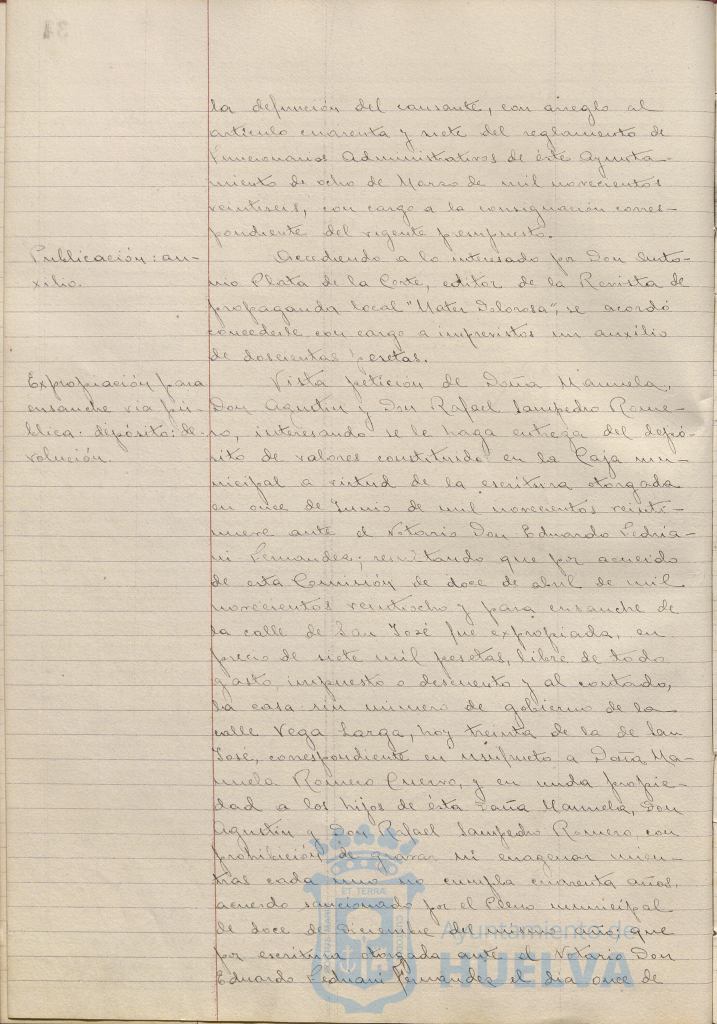 la defunción del causante, con arreglo al
artículo cuarenta y siete del reglamento de
Funcionarios Administrativos de éste Ayunta-
miento de ocho de Marzo de mil novecientos
veintiseis, con cargo a la consignación corres-
pondiente del vigente presupuesto.
Publicación: au-
xilio.
Accediendo a lo interesado por Don Anto-
nio Plata de la Corte, editor de la Revista de
propaganda local "Mater Dolorosa", se acordó
concederle con cargo a imprevistos un auxilio
de doscientas pesetas.
Expropiación para
ensanche via pú-
blica: depósito: de-
volución.
Vista petición de Doña Manuela,
Don Agustín y Don Rafael Sampedro Rome-
ro, interesando se le haga entrega del depó-
sito de valores constituido en la Caja mu-
nicipal a virtud de la escritura otorgada
en once de Junio de mil novecientos veinti-
nueve ante el Notario Don Eduardo Fedria-
ni Fernandez; resultando que por acuerdo
de esta Comisión de doce de abril de mil
novecientos veintiocho y para ensanche de
la calle de San José fue expropiada, en
precio de siete mil pesetas, libre de todo
gasto, impuesto o descuento y al contado,
la casa sin número de gobierno de la
calle Vega Larga, hoy treinta de la de San
José, correspondiente en usufructo a Doña Ma-
nuela Romero Cuervo, y en nuda propie-
dad a los hijos de ésta Doña Manuela, Don
Agustín y Don Rafael Sampedro Romero, con
prohibición de gravar ni enagenar mien-
tras cada uno no cumpla cuarenta años,
acuerdo sancionado por el Pleno municipal
de doce de Diciembre del mismo año; que
por escritura otorgada ante el Notario Don
Eduardo Fedriani Fernandez el dia once de
Ayuntamiento de
HUELVA